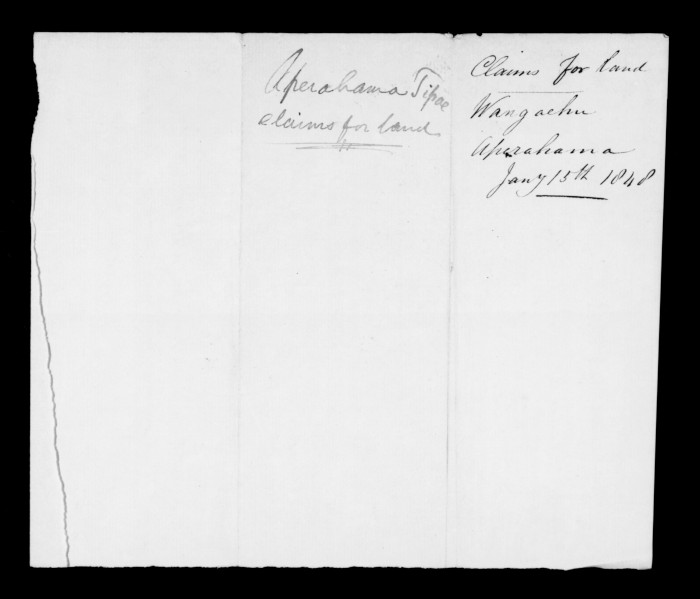 Aperahama Tipae
claims for land
Claims for Land
Wangaehu
Aperahama
Jany 15th 1848